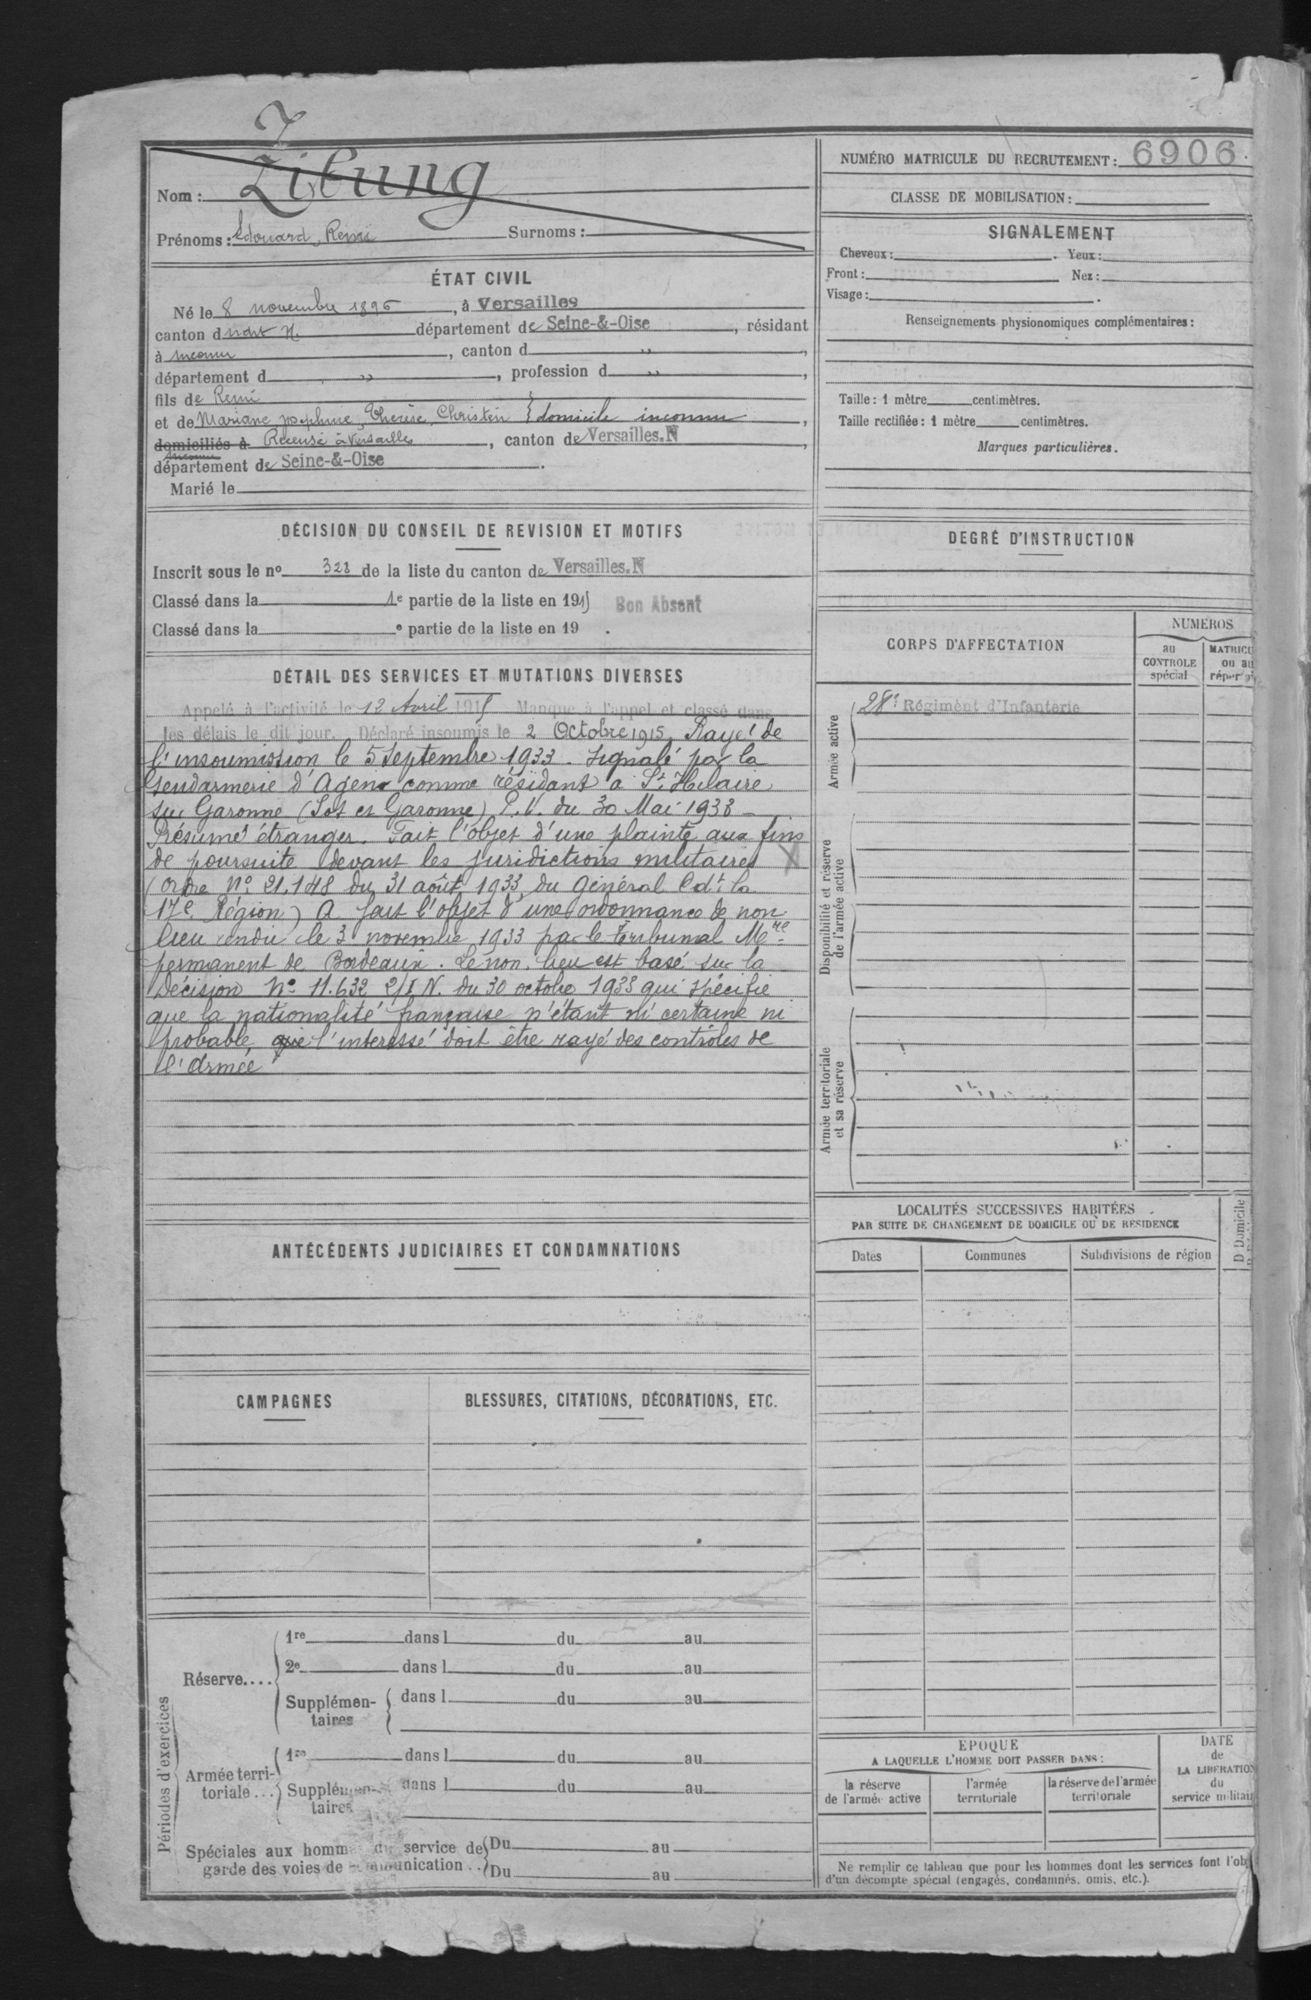 Z
Nom : Zibung
Prénoms : Edouard, Remi Surnoms :
ÉTAT CIVIL
Né le 8 novembre 1896, à Versailles
canton dudit N. département de Seine-&-Oise, résidant
à inconnu, canton d ,,
département d ,, , profession d ,, ,
fils de Remi
et de Mariane Josephine, Therèse, Christen } domicile inconnu,
domiciliés à Recensé à Versailles, canton de Versailles.N,
inconnu
département de Seine-&-Oise.
Marié le
DÉCISION DU CONSEIL DE REVISION ET MOTIFS
Inscrit sous le nº 328 de la liste du canton de Versailles.N
Classé dans la 1e partie de la liste en 1915 Bon Absent
Classé dans la e partie de la liste en 19 .
DÉTAIL DES SERVICES ET MUTATIONS DIVERSES
Appelé à l'activité le 12 Avril 1915 Manque à l'appel et classé dans
les délais le dit jour. Déclaré insoumis le 2 Octobre 1915. Rayé de
l'insoumission le 5 Septembre 1933. Signalé par la
Gendarmerie d'Agen comme résidant à St Hilaire
sur Garonne (Lot et Garonne) P.V. du 30 Mai 1933 -
Présumé étranger. Fait l'objet d'une plainte aux fins
de poursuite devant les juridictions militaires X
(ordre Nº 21.148 du 31 août 1933 du Général Cdt la
17e Région) A fait l'objet d'une ordonnance de non
lieu rendu le 3 novembre 1933 par le Tribunal Mre
permanent de Bordeaux. Le non lieu est basé sur la
Décision Nº 11.632 2/I N. du 30 octobre 1933 qui spécifie
que la nationalité française n'étant ni certaine ni
probable que l'intéressé doit être rayé des contrôles de
l'Armée
ANTÉCÉDENTS JUDICIAIRES ET CONDAMNATIONS
CAMPAGNES
BLESSURES, CITATIONS, DÉCORATIONS, ETC.
Périodes d'exercices
Réserve....
1re dans l du au
2e dans l du au
Supplémentaires dans l du au
Armée territoriale...
1re dans l du au
Supplémentaires dans l du au
Spéciales aux hommes du service de Du au
garde des voies de communication.. Du au
NUMÉRO MATRICULE DU RECRUTEMENT : 6906.
CLASSE DE MOBILISATION :
SIGNALEMENT
Cheveux : . Yeux :
Front : Nez :
Visage : .
Renseignements physionomiques complémentaires :
Taille : 1 mètre centimètres.
Taille rectifiée : 1 mètre centimètres.
Marques particulières.
DEGRÉ D'INSTRUCTION
CORPS D'AFFECTATION
NUMÉROS
au CONTROLE spécial
MATRICU
ou au
répert
Armée active
28e Régiment d'Infanterie
Disponibilité et réserve de l'armée active
Armée territoriale et sa réserve
LOCALITÉS SUCCESSIVES HABITÉES
PAR SUITE DE CHANGEMENT DE DOMICILE OU DE RÉSIDENCE
Dates Communes Subdivisions de région
D Domicile
ÉPOQUE
A LAQUELLE L'HOMME DOIT PASSER DANS :
la réserve de l'armée active
l'armée territoriale
la réserve de l'armée territoriale
DATE
de
LA LIBÉRATION
du
service militair
Ne remplir ce tableau que pour les hommes dont les services font l'ob
d'un décompte spécial (engagés, condamnés, omis, etc.).